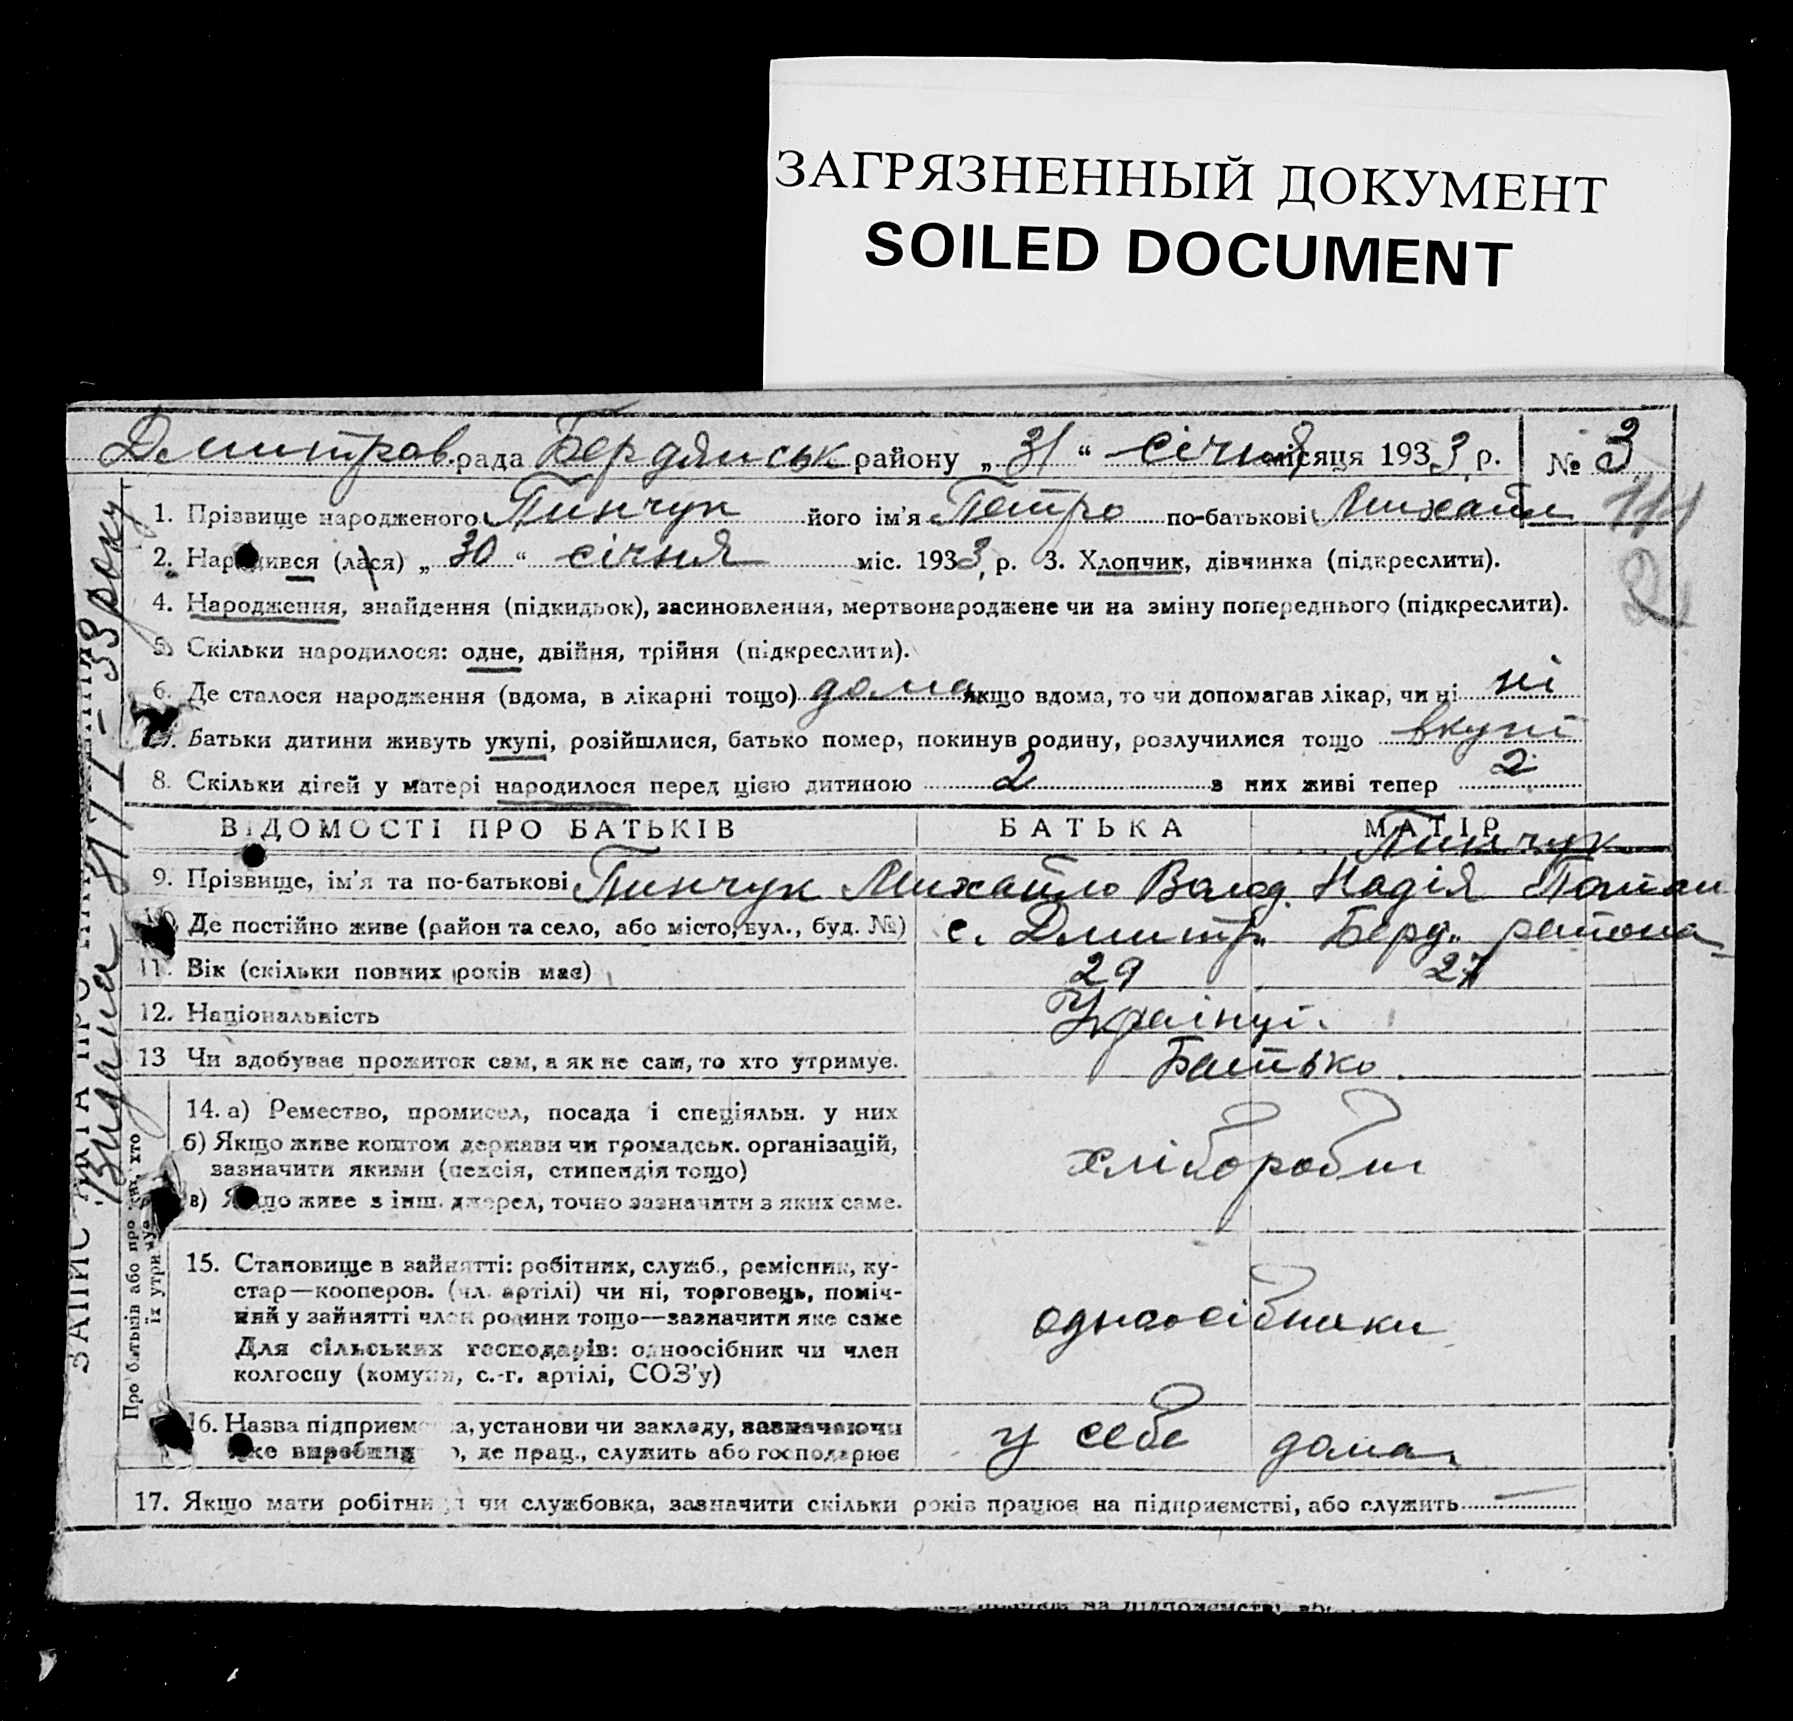 ЗАГРЯЗНЕННЫЙ ДОКУМЕНТ
SOILED DOCUMENT
Дмитров. рада Бердянськ району „ 31 “ січня місяця 1933 р. № 3
1. Прізвище народженого Пинчук його ім'я Петро по-батькові Михайл
2. Народився (лася) „ 30 “ січня міс. 1933, р. 3. Хлопчик, дівчинка (підкреслити).
4. Народження, знайдення (підкидьок), засиновлення, мертвонароджене чи на зміну попереднього (підкреслити).
5. Скільки народилося: одне, двійня, трійня (підкреслити).
6. Де сталося народження (вдома, в лікарні тощо) дома якщо вдома, то чи допомагав лікар, чи ні ні
7. Батьки дитини живуть укупі, розійшлися, батько помер, покинув родину, розлучилися тощо вкупі
8. Скільки дітей у матері народилося перед цією дитиною 2 з них живі тепер 2
ВІДОМОСТІ ПРО БАТЬКІВ БАТЬКА МАТІР
Пинчук
9. Прізвище, ім'я та по-батькові Пинчук Михайло Волод. Надія Потап
10. Де постійно живе (район та село, або місто, вул., буд. №) с. Дмитр. Берд. района
11. Вік (скільки повних років має) 29 27
12. Національність Українці.
13 Чи здобуває прожиток сам, а як не сам, то хто утримує. Батько.
14. а) Ремество, промисел, посада і спеціяльн. у них
б) Якщо живе коштом держави чи громадськ. організацій,
зазначити якими (пенсія, стипендія тощо) хлібороби
в) Якщо живе з інш. джерел, точно зазначити з яких саме.
15. Становище в зайнятті: робітник, служб., ремісник, ку-
стар—кооперов. (чл. артілі) чи ні, торговець, поміч-
ний у зайнятті член родини тощо—зазначити яке саме одноосібники
Для сільських господарів: одноосібник чи член
колгоспу (комуни, с.-г. артілі, СОЗ'у)
16. Назва підприємства, установи чи закладу, зазначаючи
яке виробниц о, де прац., служить або господарює у себе дома
17. Якщо мати робітниця чи службовка, зазначити скільки років працює на підприємстві, або служить —
ЗАПИС АКТА ПРО НАРОДЖЕННЯ
Видана 31/I–33 року
Про батьків або про них, хто
їх утримує